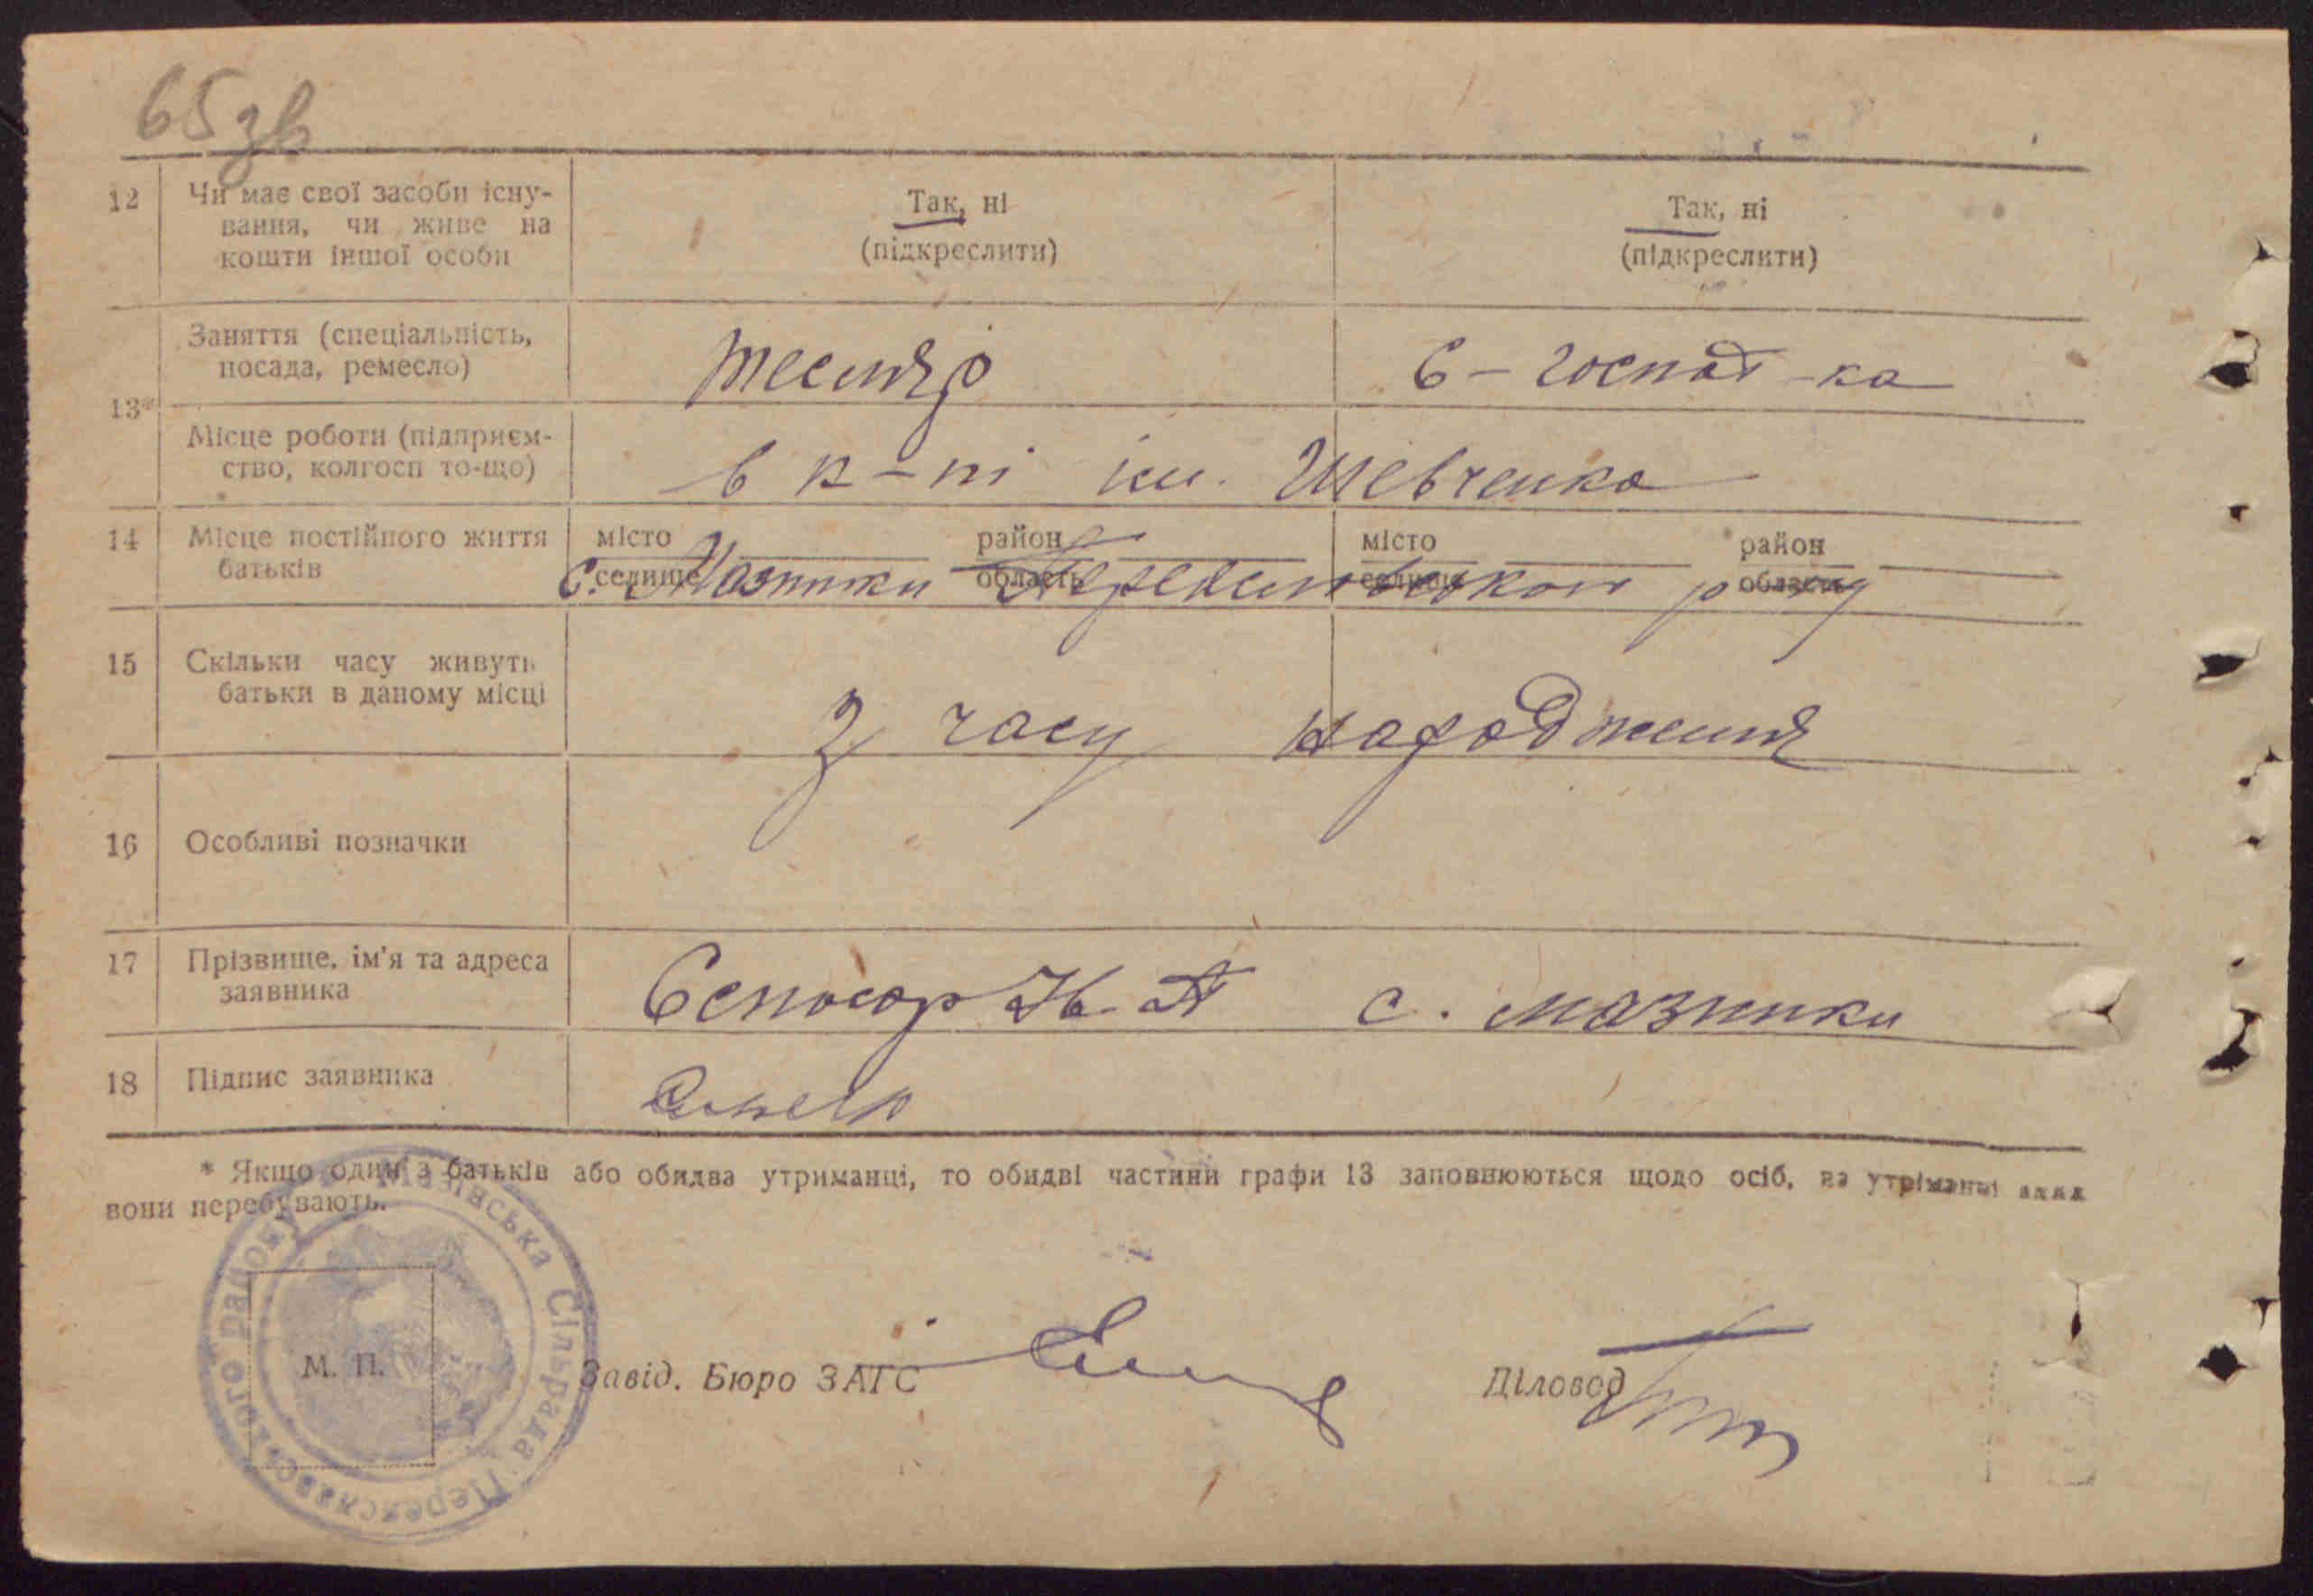 65 зв
12 Чи має свої засоби існу-
вання, чи живе на
кошти іншої особи
Так, ні
(підкреслити)
Так, ні
(підкреслити)
13*
Заняття (спеціальність,
посада, ремесло)
тесляр
б-господ-ка
Місце роботи (підприєм-
ство, колгосп то-що)
в к-пі ім. Шевченка
14 Місце постійного життя
батьків
місто
селище
район
область
місто
селище
район
область
с. Мазінки
15 Скільки часу живуть
батьки в даному місці
З часу народження
16 Особливі позначки
17 Прізвище, ім'я та адреса
заявника
с. Мазінки
18 Підпис заявника
* Якщо один з батьків або обидва утриманці, то обидві частини графи 13 заповнюються щодо осіб, на утриманні яких
вони перебувають.
Сільрада Переяславського району
М. П.
Завід. Бюро ЗАГС
Діловод